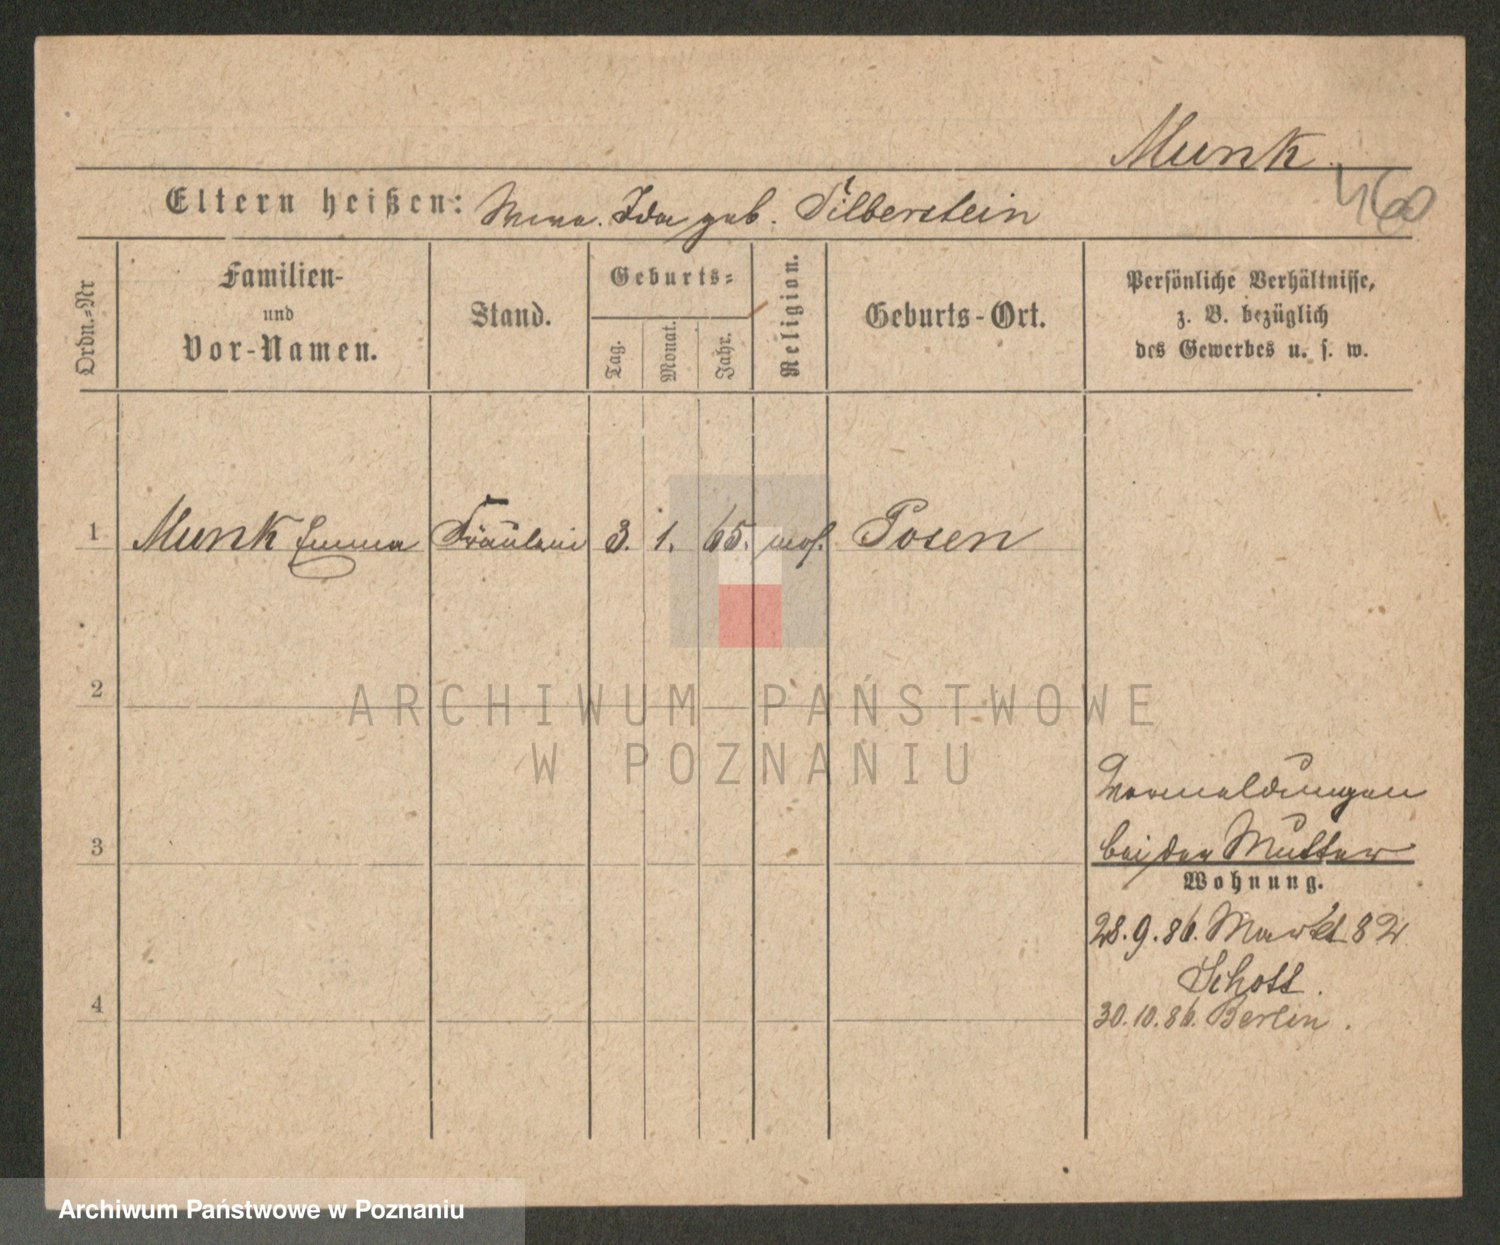 Munk.
460
Eltern heißen: Wwe. Ida geb. Silberstein
Ordn.-Nr
Familien-
und
Vor-Namen.
Stand.
Geburts-
Tag.
Monat.
Jahr.
Religion.
Geburts-Ort.
Persönliche Verhältnisse,
z. B. bezüglich
des Gewerbes u. s. w.
1 Munk Emma Fräulein 3. 1. 65. mos. Posen
2
ARCHIWUM PAŃSTWOWE
W POZNANIU
Vormeldungen
3 bei der Mutter
Wohnung.
28.9.86. Markt 82
Schott.
4 30.10.86. Berlin.
Archiwum Państwowe w Poznaniu